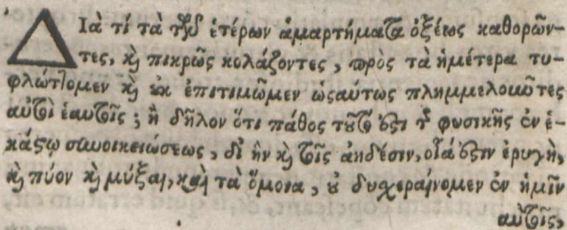 Διὰ τί τὰ τῶν ἑτέρων ἁμαρτήματα ὀξέως καθορῶν-
τες, καὶ πικρῶς κολάζοντες, πρὸς τὰ ἡμέτερα τυ-
φλώττομεν καὶ οὐκ ἐπιτιμῶμεν ὡσαύτως πλημμελοῦντες
αὐτοὶ ἑαυτοῖς; ἢ δῆλον ὅτι πάθος τοῦτό ἐστι τῆς φυσικῆς ἐν ἑ-
κάστῳ συνοικειώσεως, δι' ἣν καὶ τοῖς ἀηδέσιν, οἷά ἐστιν ἐρυγὴ,
καὶ πύον καὶ μύξαι, καὶ τὰ ὅμοια, οὐ δυχεραίνομεν ἐν ἡμῖν
αὐτοῖς,